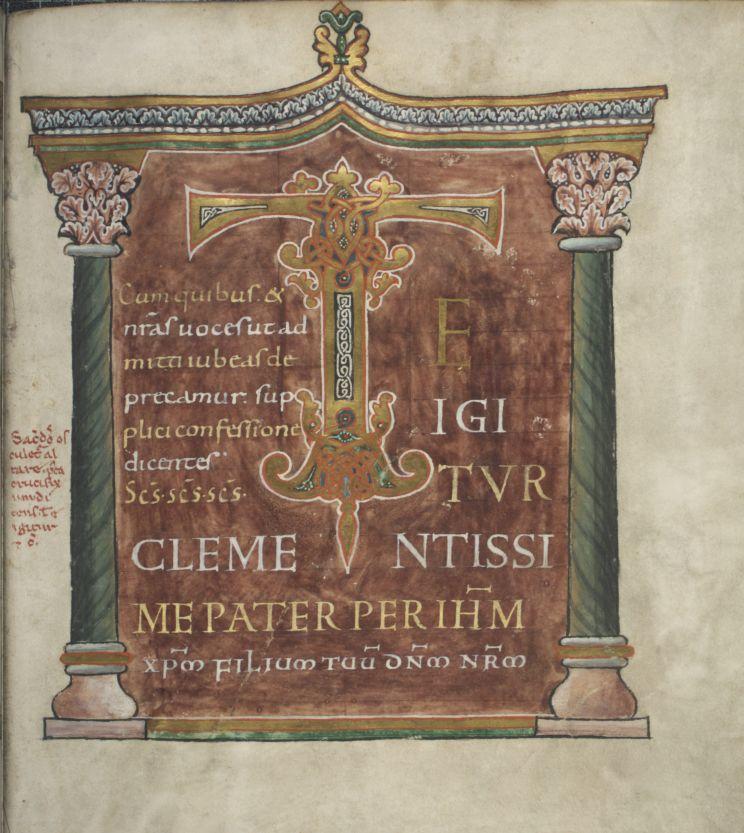 Cum quibus & 
nr̄as uoces ut ad
mitti iubeas de
precamur. sup
plici confessione
dicentes
Sc̄s. sc̄s. sc̄s.
TE
IGI
TVR
CLEMENTISSI
ME PATER PER IHM̄
XPM̄ FILIUM TUŪ DN̄M NR̄M
culet al
tare